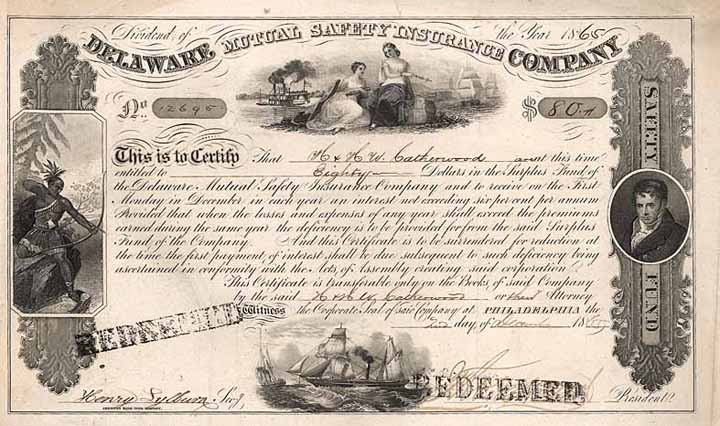 Dividend of the Year 1865
DELAWARE MUTUAL SAFETY INSURANCE COMPANY
No 12695 $80.
This is to Certify That H & H. W. Catherwood are at this time
entitled to Eighty Dollars in the Surplus Fund of
the Delaware Mutual Safety Insurance Company and to receive on the First
Monday in December in each year an interest not exceeding six per cent per annum
Provided that when the losses and expenses of any year shall exceed the premiums
earned during the same year the deficiency is to be provided for from the said Surplus
Fund of the Company. And this Certificate is to be surrendered for reduction at
the time the first payment of interest shall be due subsequent to such deficiency being
ascertained in conformity with the Acts of Assembly creating said corporation.
This Certificate is transferable only on the Books of said Company
by the said H & H. W. Catherwood or their Attorney
Witness the Corporate Seal of said Company at PHILADELPHIA the
day of 18
REDEEMED
REDEEMED.
Henry Lylburn Secy.
President
AMERICAN BANK NOTE COMPANY.
SAFETY FUND